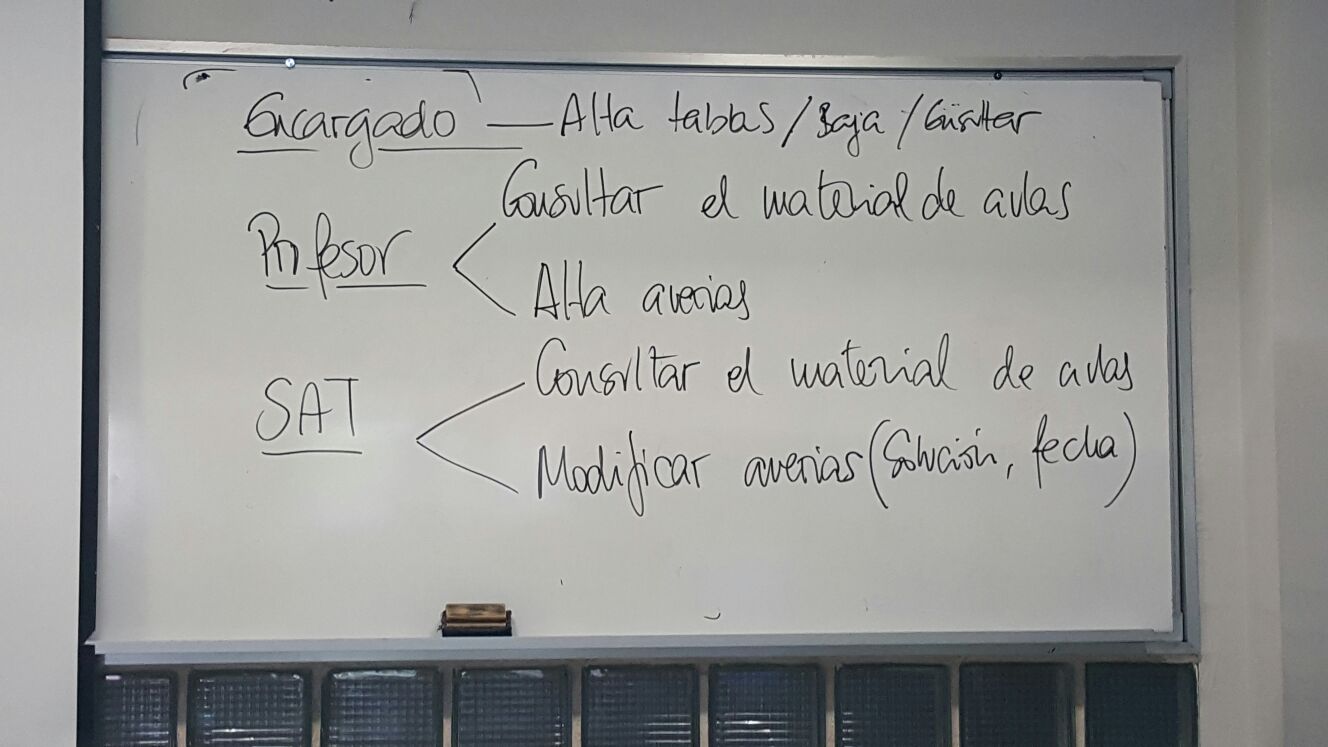 Encargado — Alta tablas / Baja / Consultar
Consultar el material de aulas
Profesor
Alta averias
Consultar el material de aulas
SAT
Modificar averias (Solución, fecha)